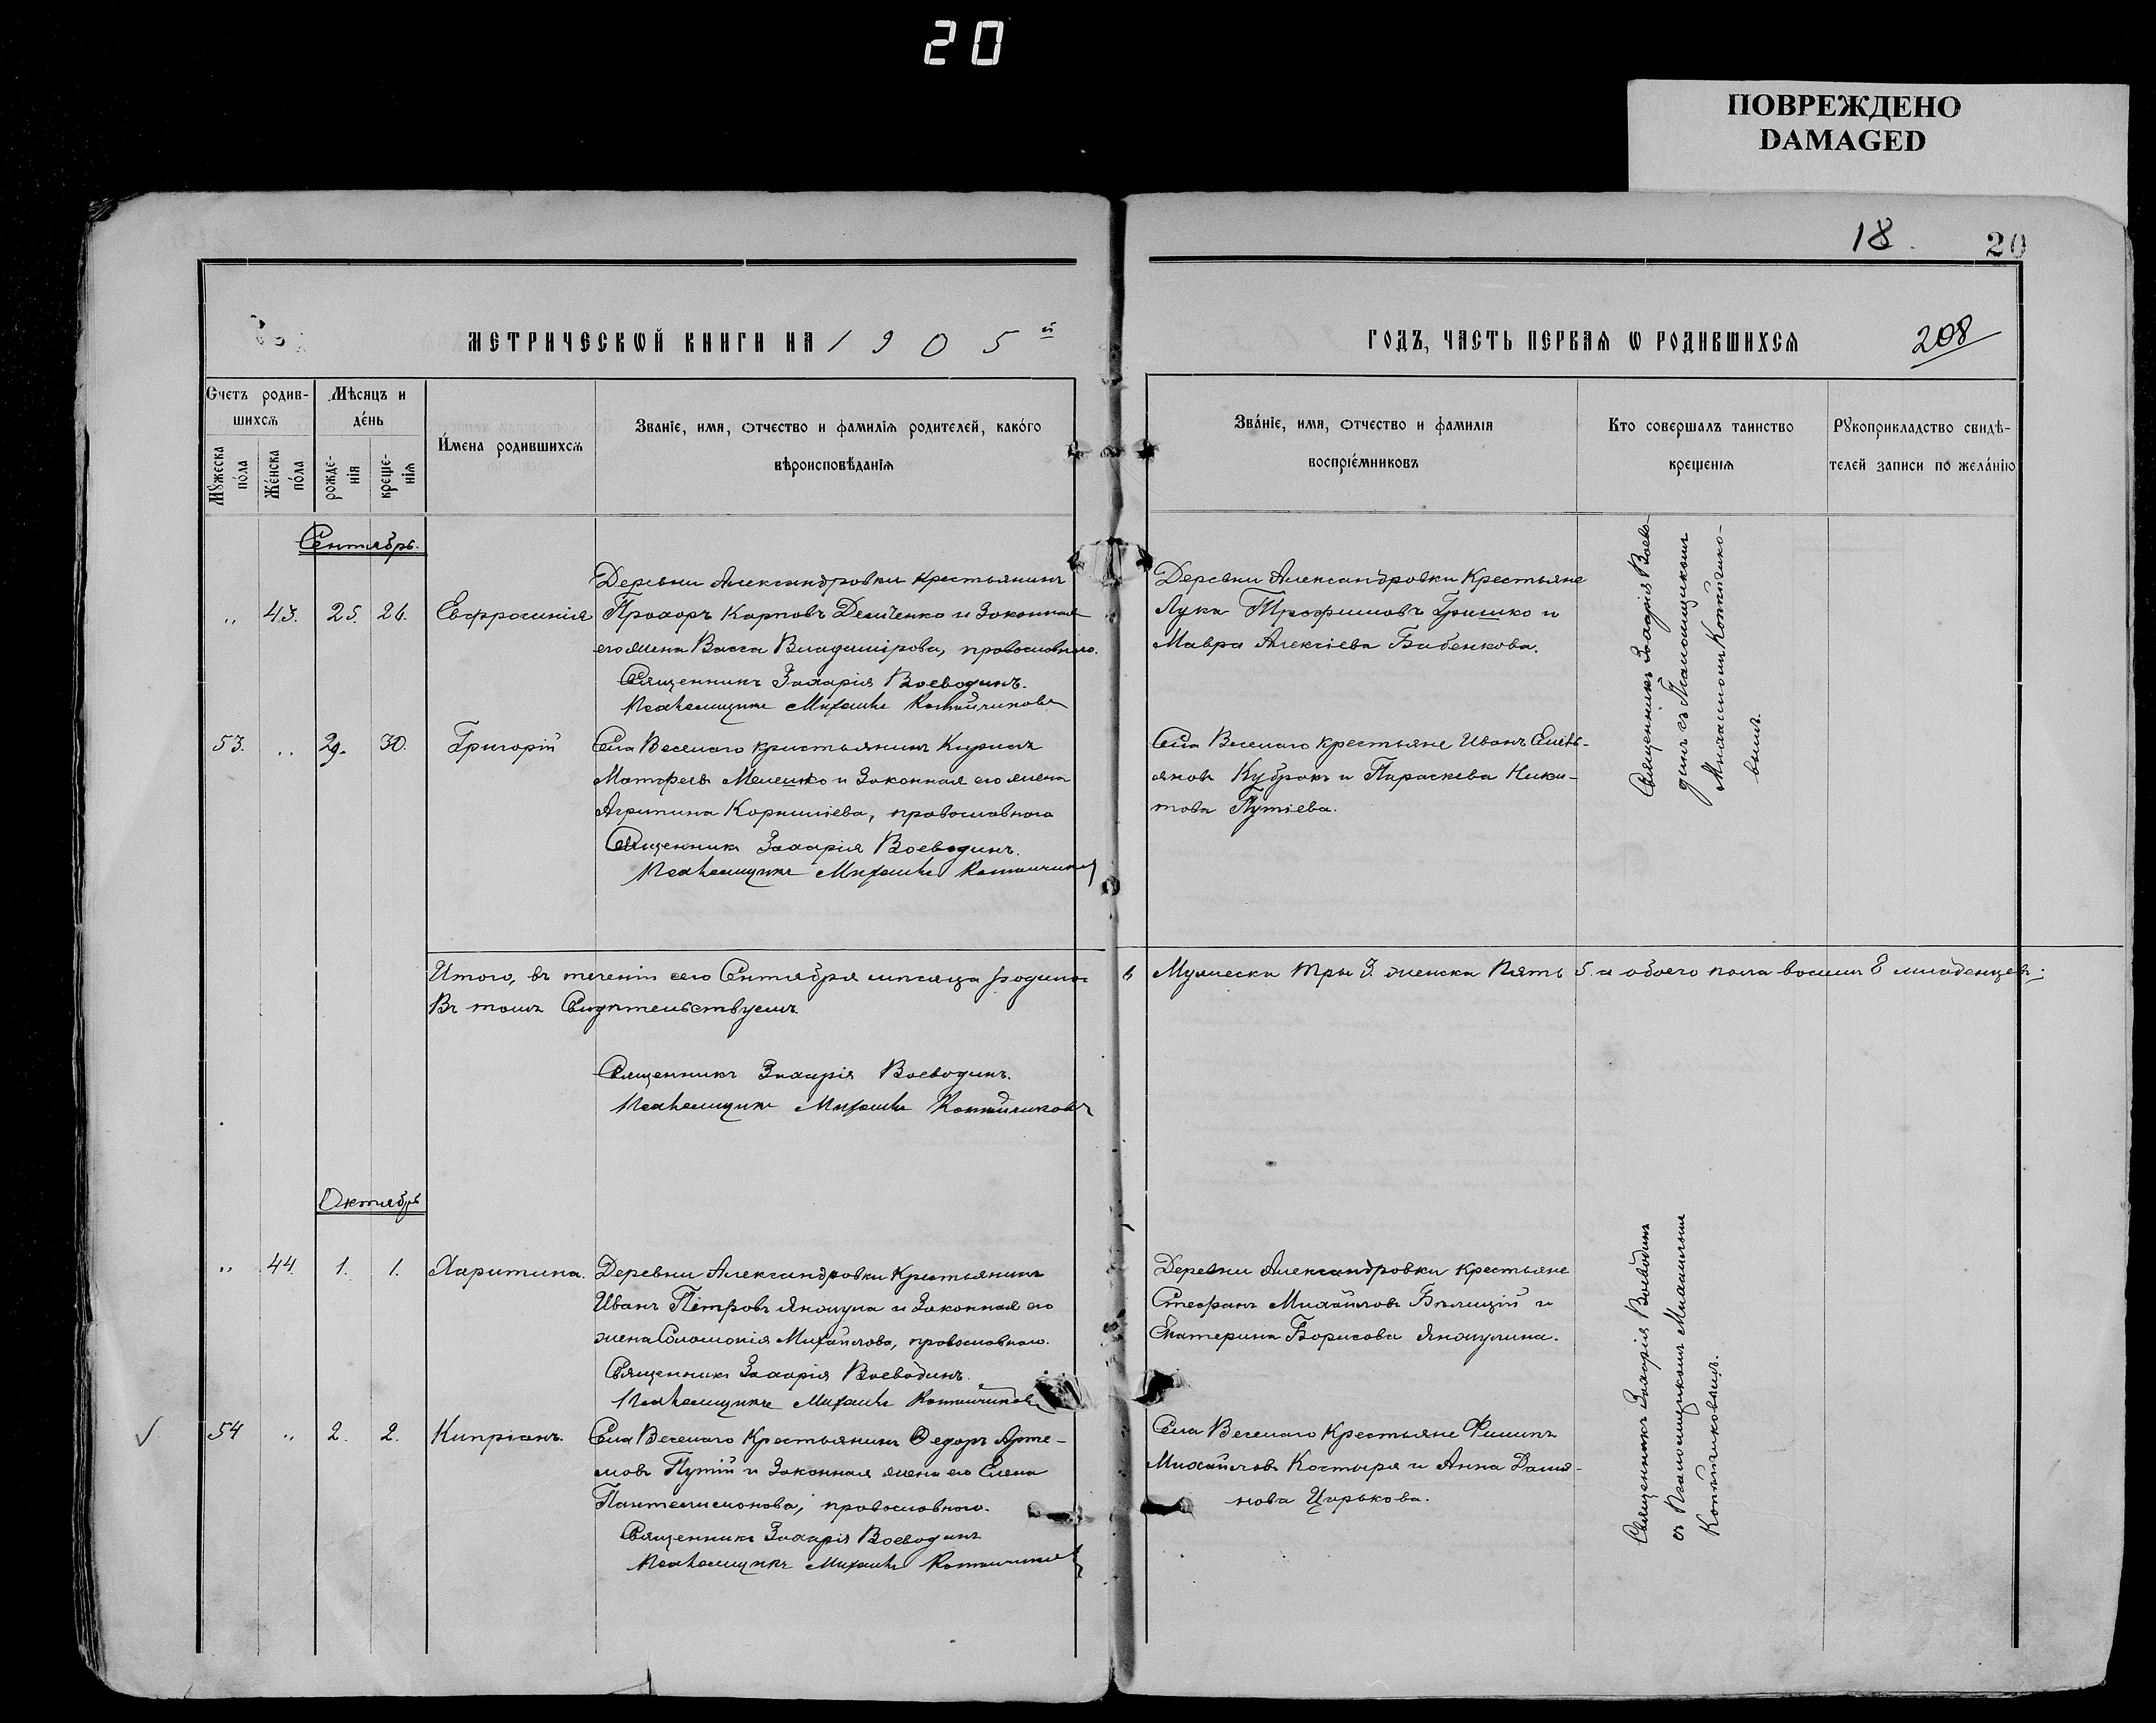 20
ПОВРЕЖДЕНО
DAMAGED
18.
20
МЕТРИЧЕСКѠЙ КНИГИ НА 1905й
ГОДЪ, ЧАСТЬ ПЕРВАѦ Ѡ РОДИВШИХСѦ
208
Счетъ родив-
шихсѧ
Мѣсяцъ и
де́нь
Мꙋжеска
по́ла
Же́нска
по́ла
рожде-
нія
креще-
нія
И́мена родившихсѧ
Званіе, имя, отчество и фамилія родителей, како́го
вѣроисповѣданія
Зва́ніе, имя, отчество и фамилія
воспріе́мниковъ
Кто совершалъ таинство
крещенія
Рꙋкоприкладство свидѣ-
телей записи по жела́нію
Сентябрь.
„ 43. 25. 26. Евфросинія
Деревни Александровки крестьянинъ
Прохоръ Карповъ Демченко и законная
его жена Васса Владимірова, православнаго.
Священникъ Захарія Воеводинъ.
Псаломщикъ Михаилъ
Деревни Александровки Крестьяне
Лука Трофимовъ Гришко и
Мавра Алексіева Бабенкова.
Священникъ Захарія Воево-
динъ съ Псаломщикомъ
Михаиломъ
вымъ.
53. „ 29. 30. Григорій
Села Веселаго крестьянинъ Кириллъ
Матфеевъ Мелешко и законная его жена
Агрипина Корниліева, православнаго
Священникъ Захарія Воеводинъ.
Псаломщикъ Михаилъ
Села Веселаго крестьяне Иванъ Емель-
яновъ Кубракъ и Параскева Ники-
това Путіева.
Итого, въ теченіи сего Сентября мѣсяца родилось
Мужеска три 3. женска пять 5. а обоего пола восемь 8 младенцевъ.
Въ томъ Свидѣтельствуемъ
Священникъ Захарія Воеводинъ.
Псаломщикъ Михаилъ
Октябрь
„ 44. 1. 1. Харитина.
Деревни Александровки Крестьянинъ
Иванъ Петровъ и законная его
жена Соломонія Михайлова, православнаго.
Священникъ Захарія Воеводинъ.
Псаломщикъ Михаилъ
Деревни Александровки крестьяне
Стефанъ Михайловъ Бѣлицкій и
Екатерина Борисова
Священникъ Захарія Воеводинъ
съ Псаломщикомъ Михаиломъ
54 „ 2. 2. Кипріанъ.
Села Веселаго Крестьянинъ Федоръ Арте-
мовъ Путій и законная жена его Елена
Пантелимонова, православнаго.
Священникъ Захарія Воеводинъ
Псаломщикъ Михаилъ
Села Веселаго Крестьяне Филипъ
Михайловъ Костыря и Анна Дамія-
нова Царькова.